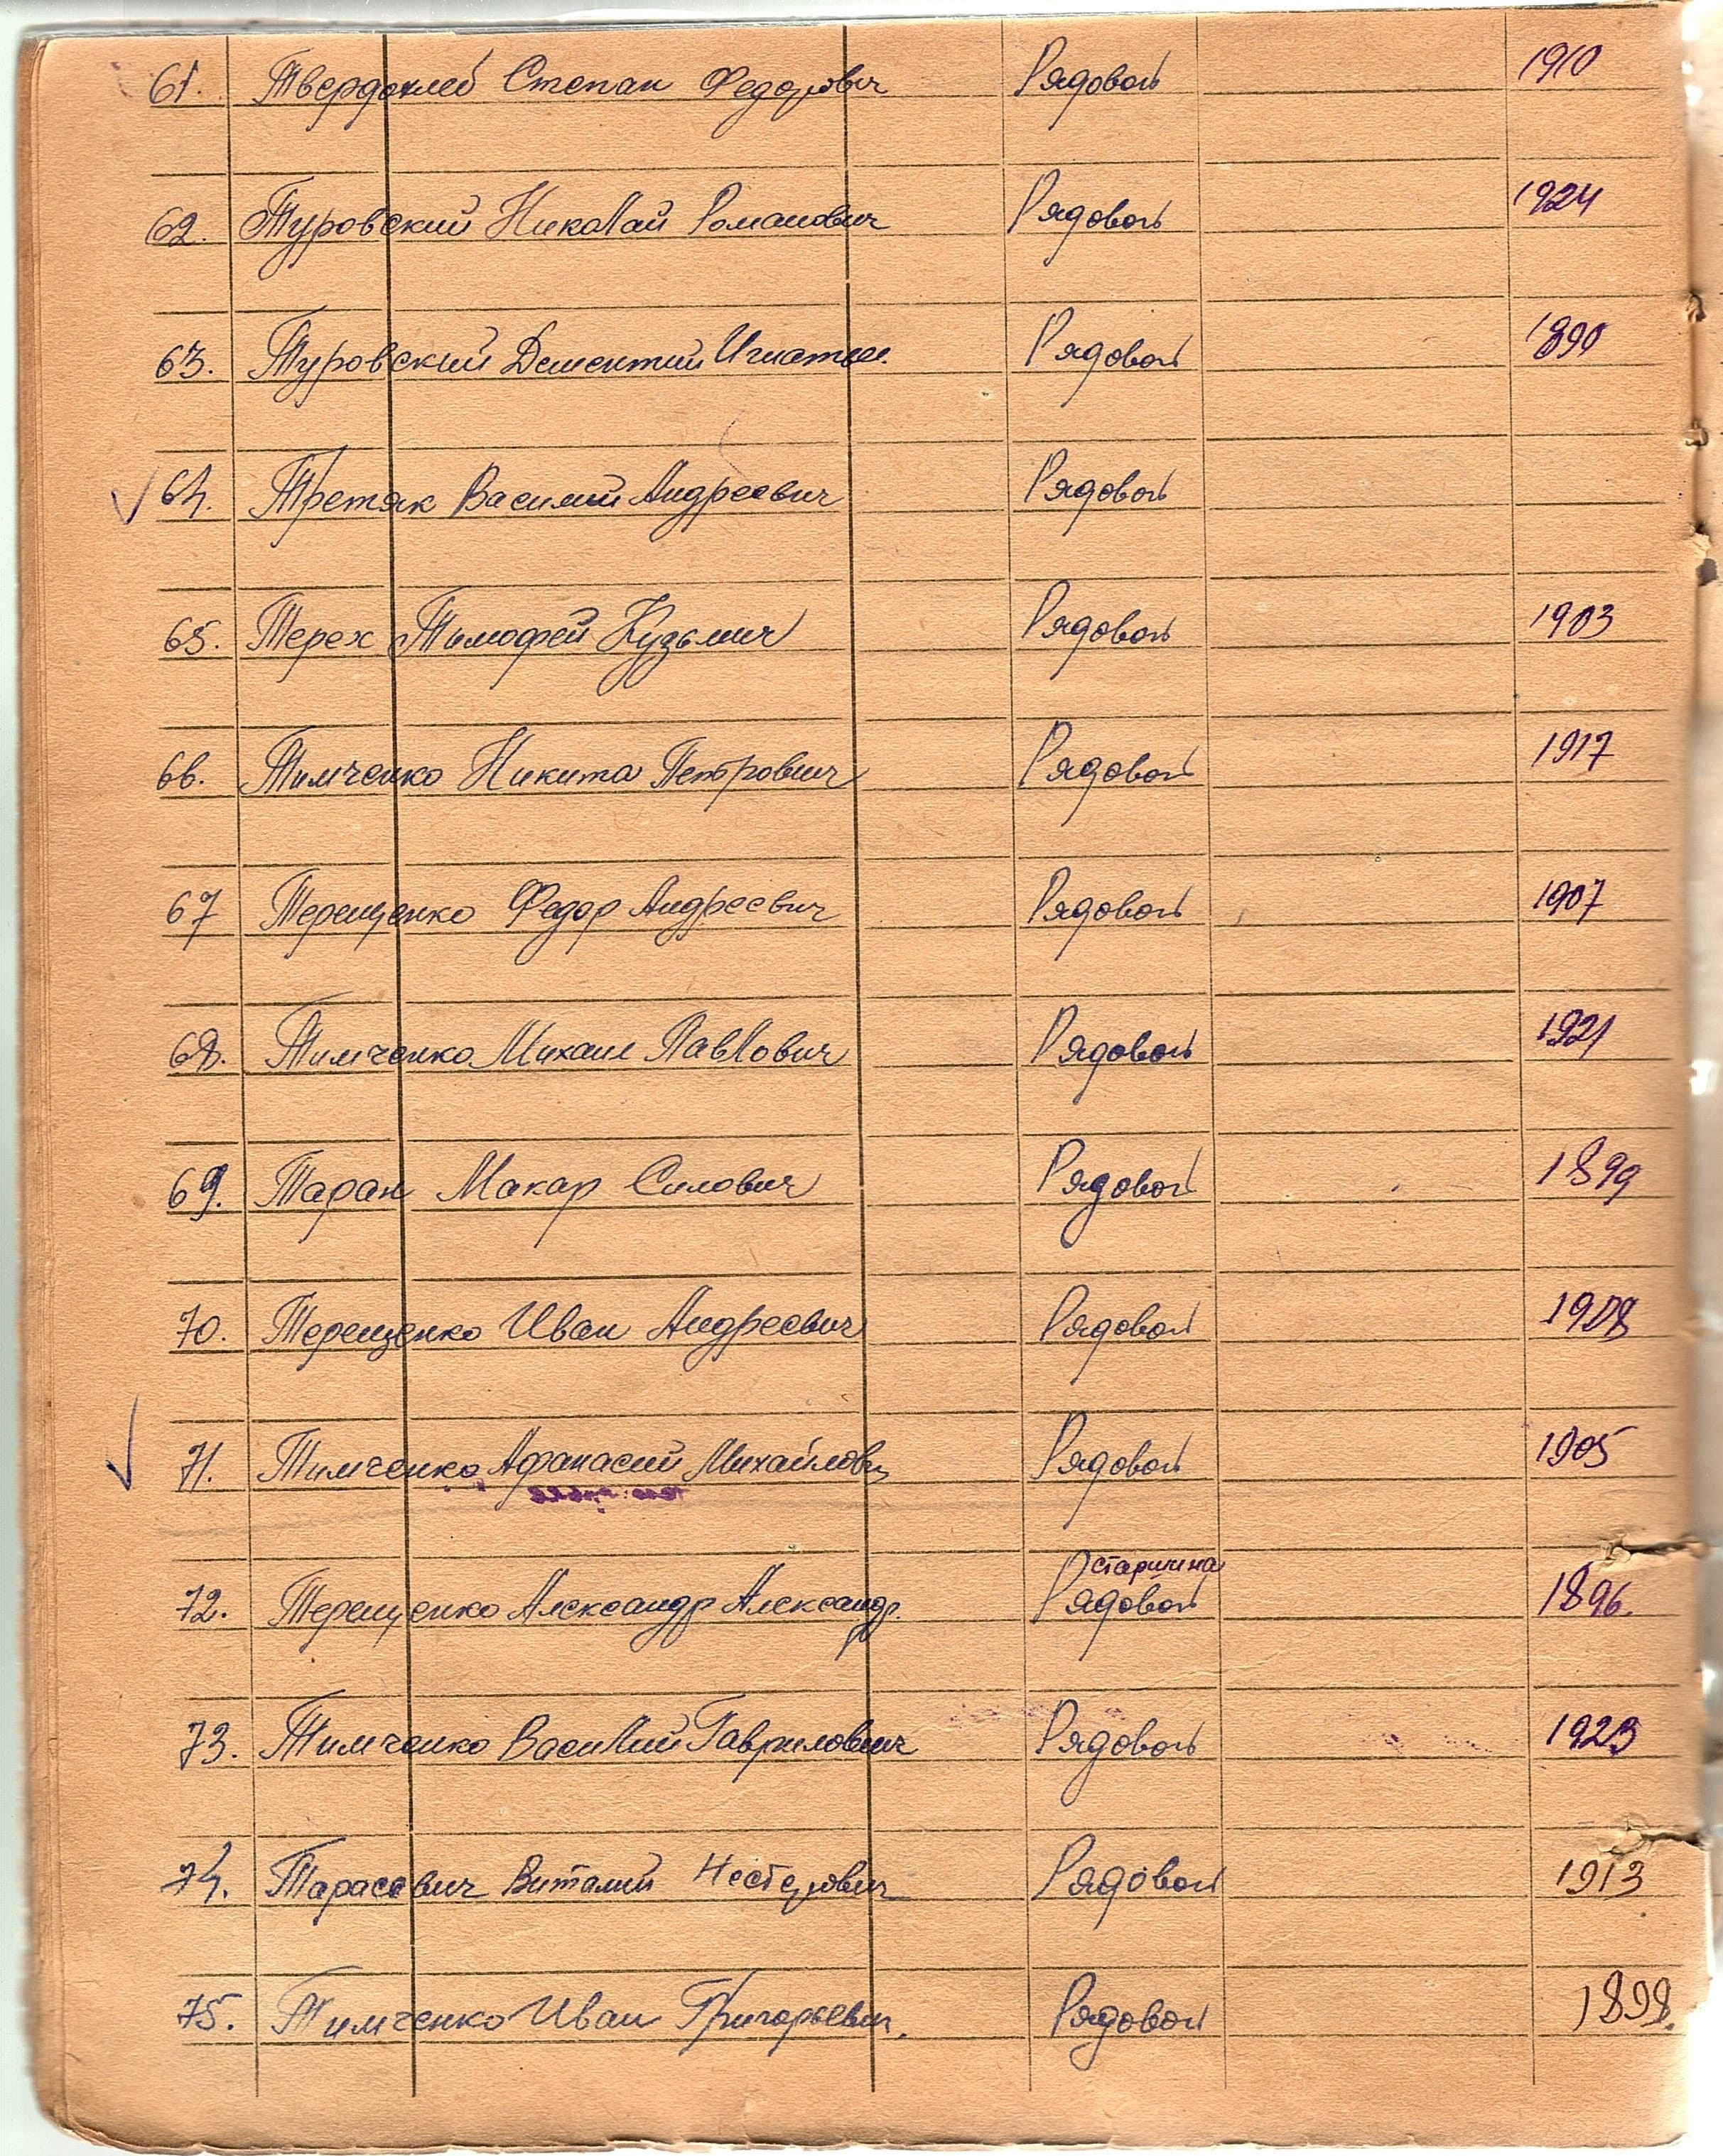 61. Твердохлеб Степан Федорович Рядовой 1910
62. Туровский Николай Романович Рядовой 1924
63. Туровский Дементий Игнатье. Рядовой 1890
64. Третяк Василий Андреевич Рядовой
65. Терех Тимофей Кузьмич Рядовой 1903
66. Тимченко Никита Петрович Рядовой 1917
67 Терещенко Федор Андреевич Рядовой 1907
68. Тимченко Михаил Павлович Рядовой 1921
69. Таран Макар Силович Рядовой 1899
70. Терещенко Иван Андреевич Рядовой 1908
71. Тимченко Афанасий Михайлович Рядовой 1905
старшина
72. Терещенко Александр Александр. Рядовой 1896.
73. Тимченко Василий Гаврилович Рядовой 1923
74. Тарасевич Виталий Нестерович Рядовой 1913
75. Тимченко Иван Григорьевич. Рядовой 1898.